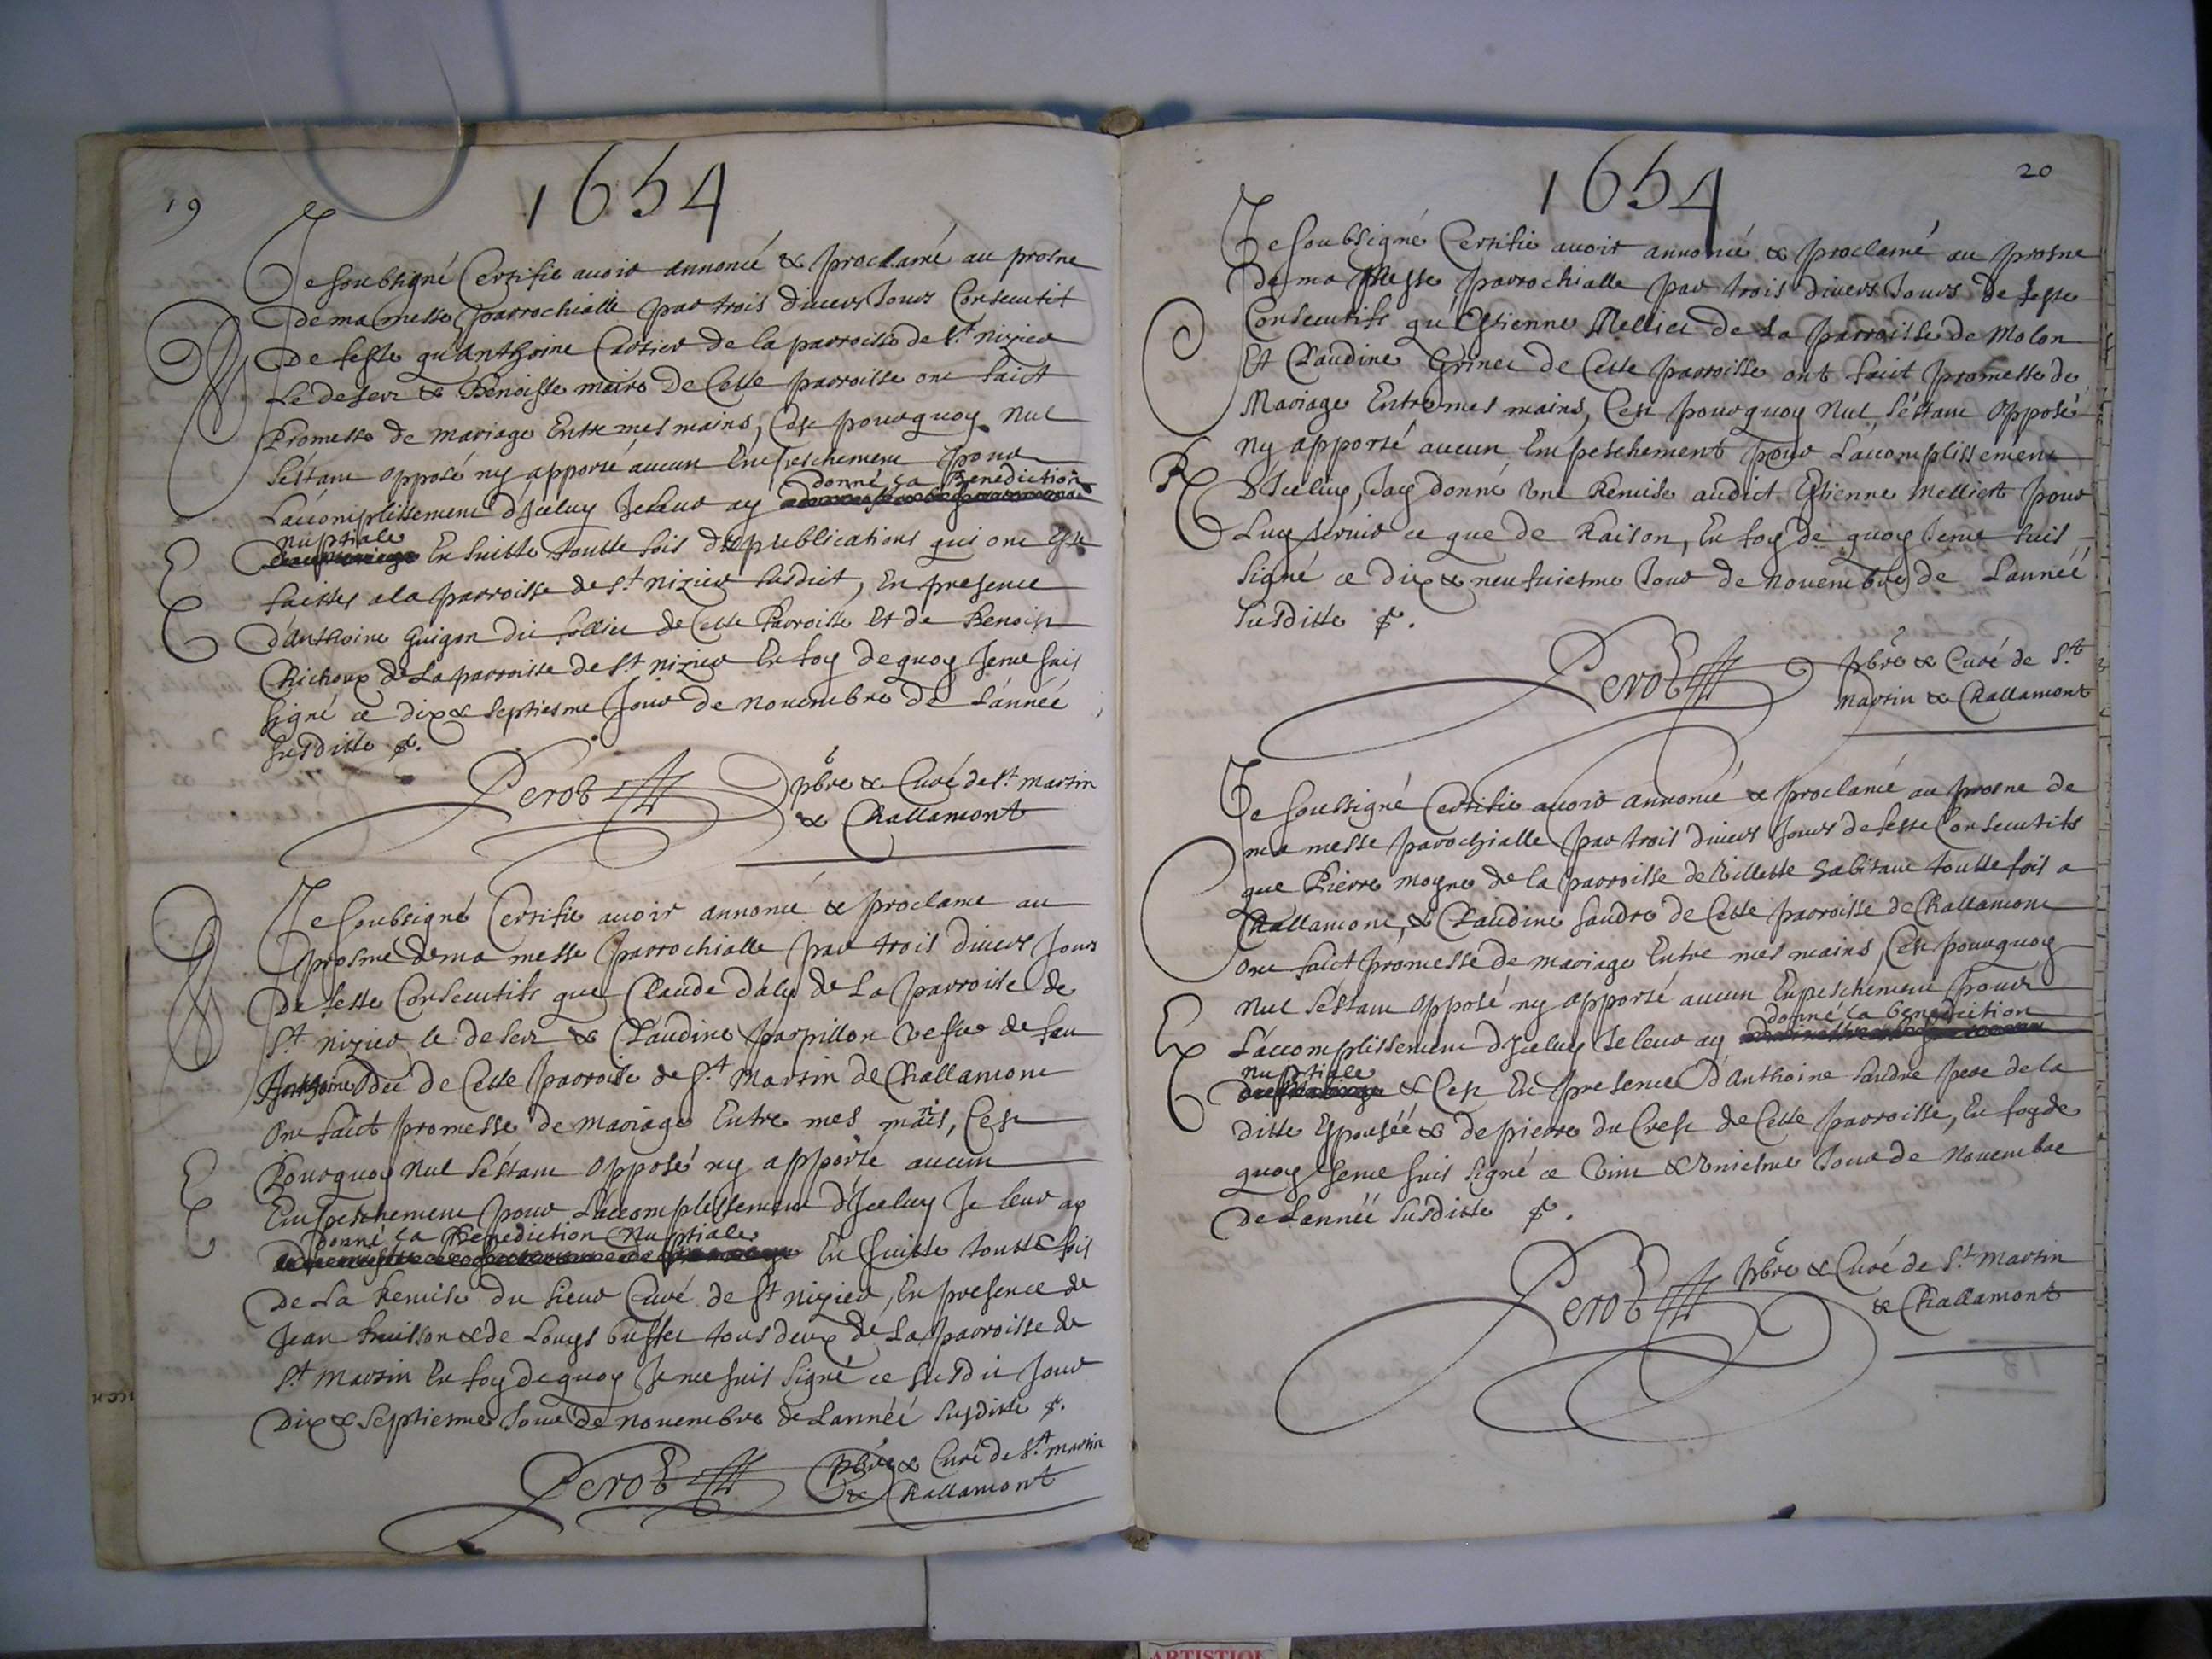 19
1654
Je soubsigné Certifie auoir annoncé & proclamé au prosne
de ma messe parrochialle par trois diuers Jours Consecutif
De feste qu'Anthoine Cartier de la parroisse de St nizier
Le desert & Benoiste maire de Cette parroisse ont faict
Promesse de mariage Entre mes mains, C'est pourquoy Nul
s'éstant opposé ny apporté aucun Empeschement pour
donné la Benediction
L'accomplissement d'Iceluy Je leur ay
nuptiale
En suitte toutte fois des publications qui ont esté
faittes a la parroisse de St nizier susdict, En presence
d'Anthoine Guigon dit de Cette Parroisse Et de Benoist
Chichoux de La parroisse de St nizier En foy de quoy Je me suis
signé ce dix & septiesme Jour de nouembre de L'année
susditte &.
Perot pbre & Curé de St martin
& Challamont
Je soubsigné Certifie auoir annoncé & proclame au
prosme de ma messe parrochialle par trois diuers Jours
De feste Consecutifs que Claude d'aly de La parroise de
St nizier le desert & Claudine papillon vefue de feu
Anthoine de Cette parroise de St Martin de Challamont
Ont faict promesse de mariage Entre mes mais, C'est
Pourquoy Nul s'éstant opposé ny apporté aucun
Empeschement pour L'accomplissement d'Iceluy Je leur ay
donné la Benediction Nuptiale
En suitte toutte fois
De La Remise du sieur Curé de St nizier, En presence de
Jean & de Louys buffet tous deux de La parroisse de
St Martin En foy de quoy Je me suis signé ce susdit Jour
Dix & septiesme Jour de nouembre de L'année susditte &.
Perot pbre & Curé de St martin
& Challamont
20
1654
Je soubsigné Certifie auoir annoncé & proclamé au prosne
de ma Messe parrochialle par trois diuers Jours de feste
Consecutifs qu'Estienne Mellier de La parroisse de Molon
Et Claudine Grinet de Cette parroisse ont faict promesse de
Mariage Entre mes mains, C'est pourquoy Nul, s'éstant opposé
ny apporté aucun Empeschement pour L'accomplissement
D'Iceluy, J'ay donné Une Remise audict Estienne Melliert pour
Luy seruir ce que de Raison, En foy de quoy Je me suis
signé ce dix & neufuiesme Jour de nouembre de L'année
susditte &.
Perot pbre & Curé de St
Martin & Challamont
Je soubsigné Certifie auoir annoncé & proclamé au prosne de
ma messe parochialle par trois diuers Jours de feste Consecutifs
que Pierre moyne de la parroisse de Villette habitant toutte fois a
Challamont, & Claudine fandre de Cette parroisse de Challamont
Ont faict promesse de mariage Entre mes mains, C'est pourquoy
Nul s'éstant opposé ny apporté aucun Empeschement pour
donné la benediction
L'accomplissement d'Iceluy Je leur ay
Nuptiale
& C'est En presence d'Anthoine fandre pere de la
ditte Espousée & de pierre du Crest de Cette parroisse, En foy de
quoy Je me suis signé ce Vint & Vniesme Jour de Nouembre
de L'année susditte &.
Perot pbre & Curé de St Martin
& Challamont